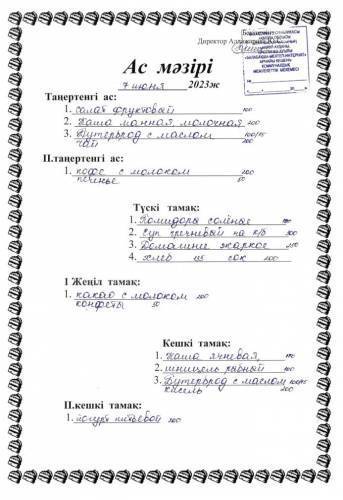 Бекітемін:
Директор
Ас мәзірі
7 июня 2023ж
Таңертенгі ас:
1. салат фруктовый 100
2. Каша манная, молочная 200
3. Бутерброд с маслом 100/15
чай 200
II.таңертенгі ас:
1. кофе с молоком 200
печенье 50
Түскі тамақ:
1. Помидоры солёные
2. Суп гречневый на к/б 300
3. Домашнее жаркое 250
4. хлеб сок 200
I Жеңіл тамақ:
1. какао с молоком 200
конфеты 50
Кешкі тамақ:
1. Каша ячневая,
2. шницель рыбный 100
3. Бутерброд с маслом 100/15
кисель 200
II.кешкі тамақ:
1. йогурт питьевой 200